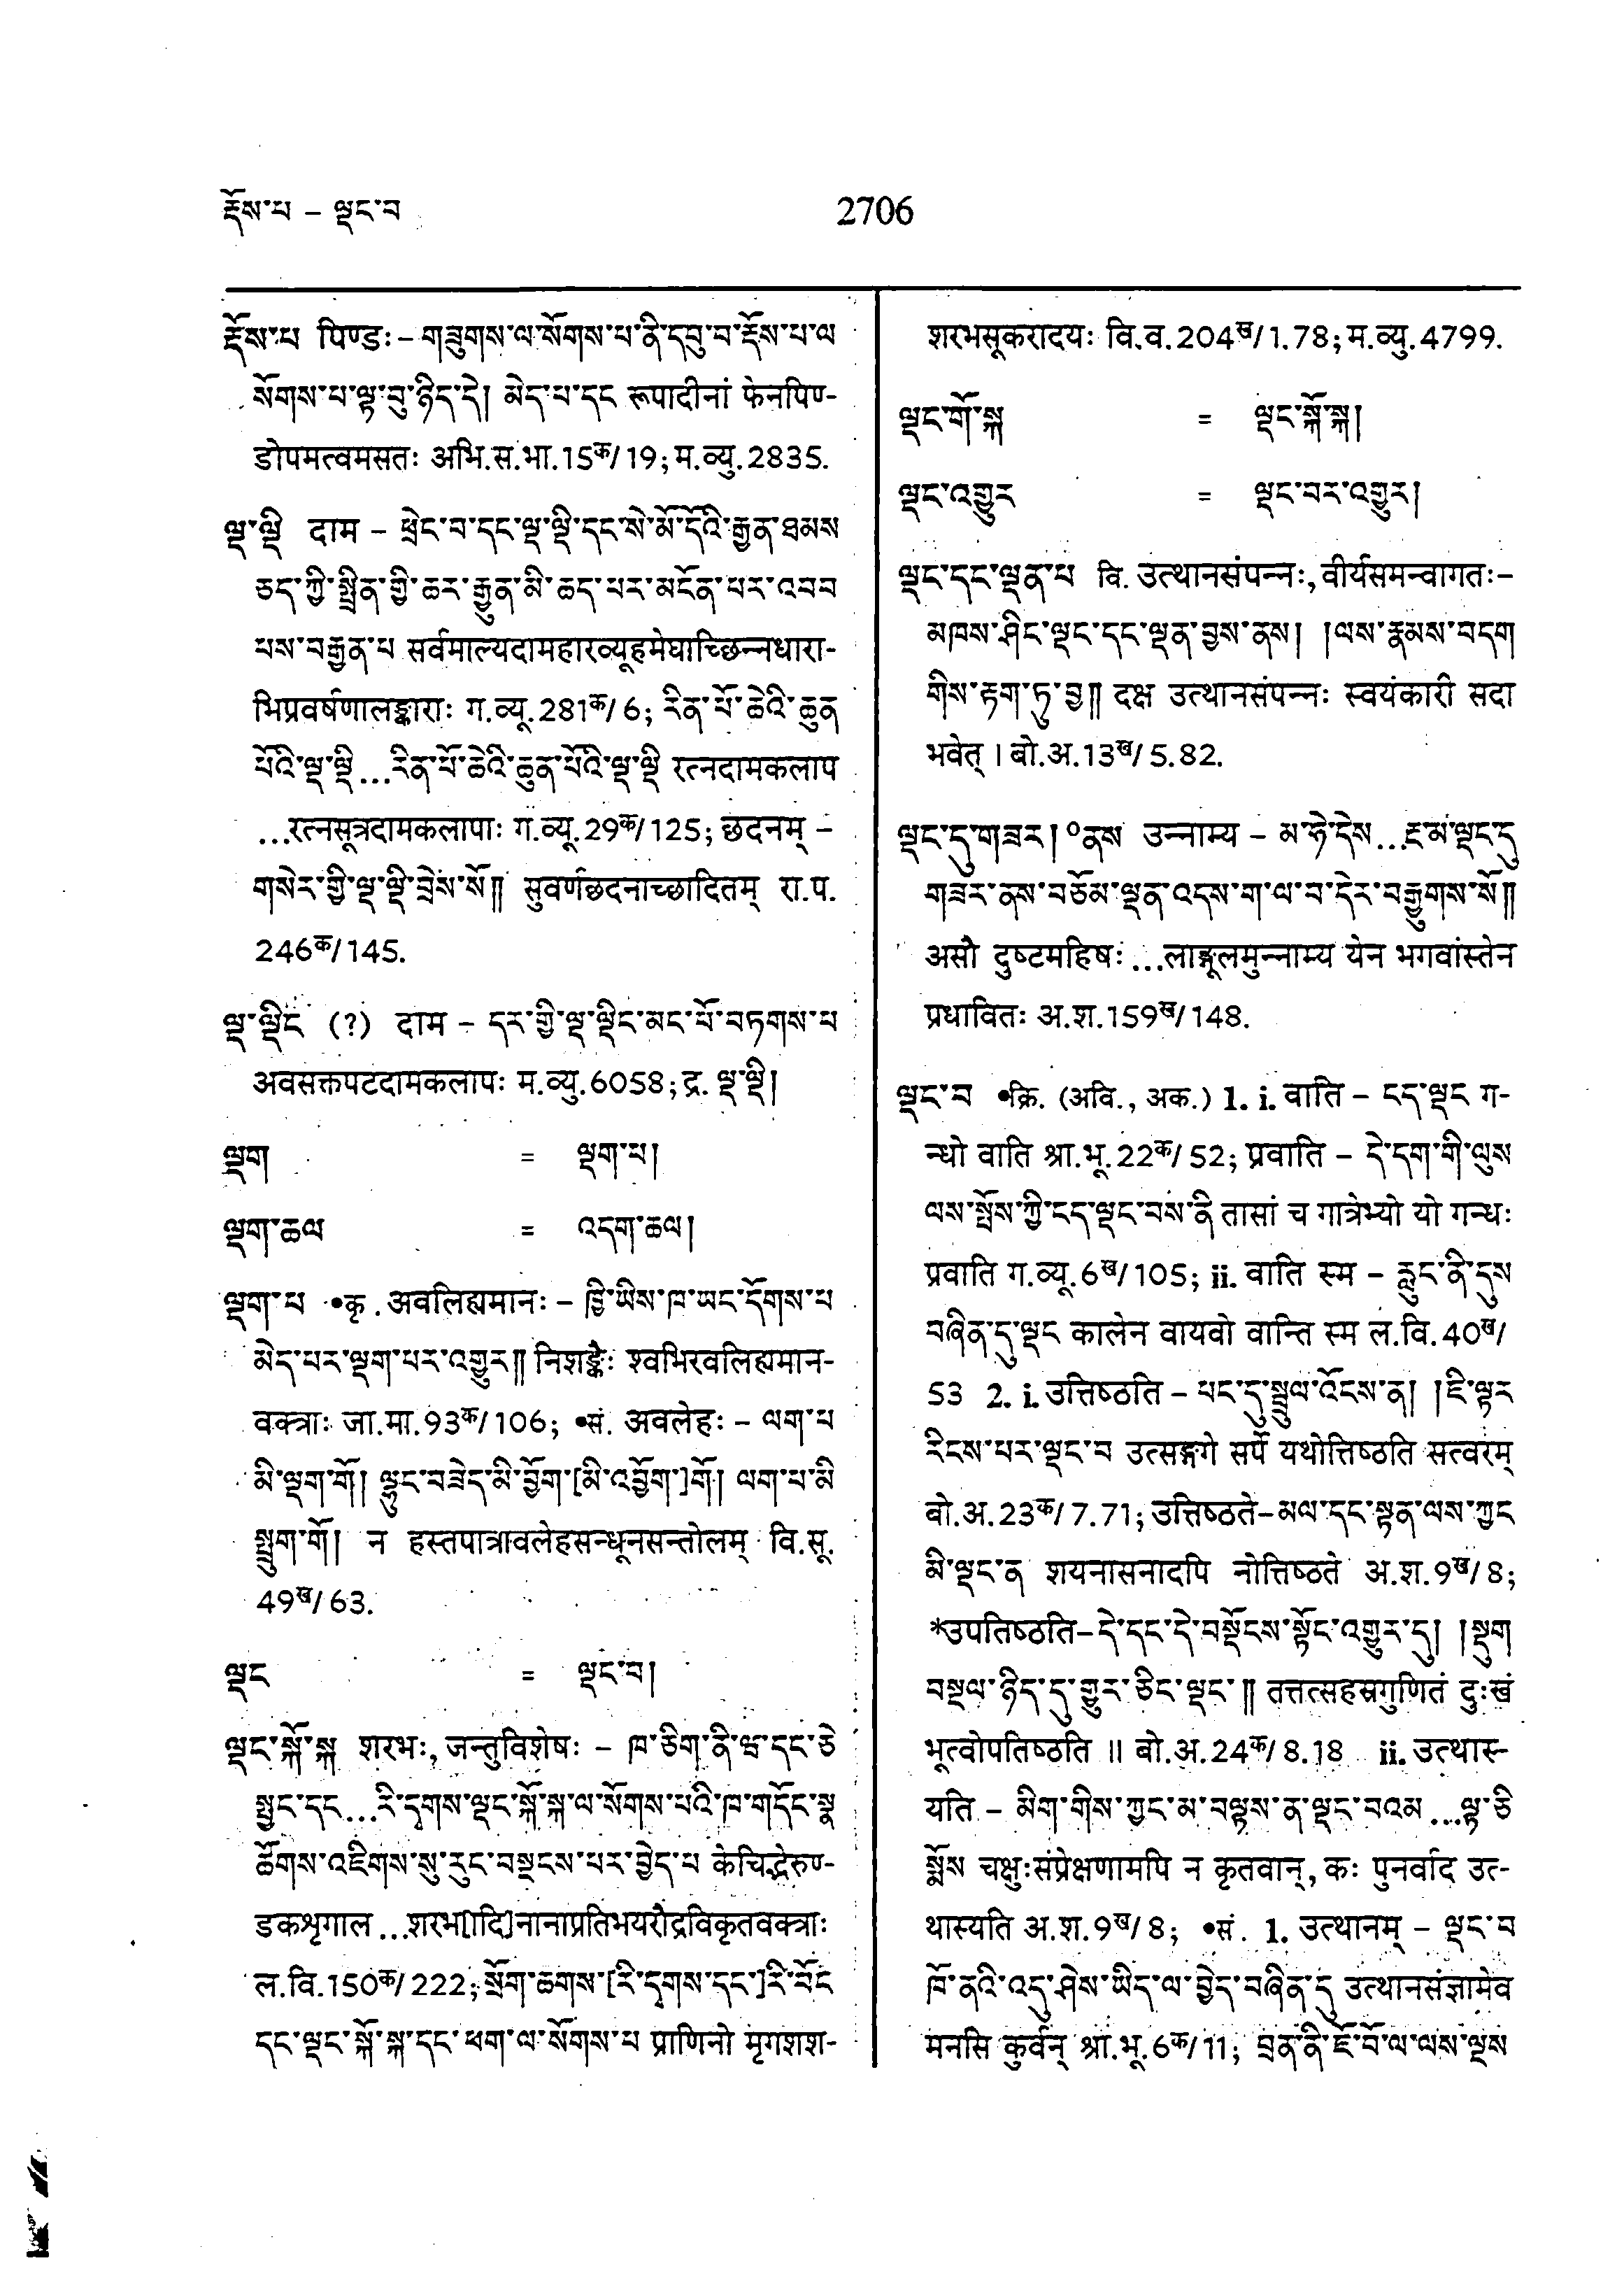 རྡོས་པ – ལྡང་བ
2706
རྡོས་པ पिण्डः – གཟུགས་ལ་སོགས་པ་ནི་དབུ་བ་རྡོས་པ་ལ
སོགས་པ་ལྟ་བུ་ཉིད་དེ། མེད་པ་དང रूपादीनां फेनपिण-
डोपमत्वमसतः अभि.स.भा.15क/19; म.व्यु.2835.
ལྡ་ལྡི दाम – ཕྲེང་བ་དང་ལྡ་ལྡི་དང་སེ་མོ་དོའི་རྒྱན་ཐམས
ཅད་ཀྱི་སྤྲིན་གྱི་ཆར་རྒྱུན་མི་ཆད་པར་མངོན་པར་འབབ
པས་བརྒྱན་པ सर्वमाल्यदामहारव्यूहमेघाच्छिन्नधारा-
भिप्रवर्षणालङ्काराः ग.व्यू.281क/6; རིན་པོ་ཆེའི་ཆུན
པོའི་ལྡ་ལྡི...རིན་པོ་ཆེའི་ཆུན་པོའི་ལྡ་ལྡི रत्नदामकलाप
...रत्नसूत्रदामकलापाः ग.व्यू.29क/125; छदनम् –
གསེར་གྱི་ལྡ་ལྡི་བྲེས་སོ༎ सुवर्णछदनाच्छादितम् रा.प.
246क/145.
ལྡ་ལྡིང (?) दाम – དར་གྱི་ལྡ་ལྡིང་མང་པོ་བཏགས་པ
अवसक्तपटदामकलापः म.व्यु.6058; द्र. ལྡ་ལྡི།
ལྡག = ལྡག་པ།
ལྡག་ཆལ = འདག་ཆལ།
ལྡག་པ •कृ. अवलिह्यमानः – ཁྱི་ཡིས་ཁ་ཡང་དོགས་པ
མེད་པར་ལྡག་པར་འགྱུར༎ निशङ्कैः श्वभिरवलिह्यमान-
वक्त्राः जा.मा.93क/106; •सं. अवलेहः – ལག་པ
མི་ལྡག་གོ། ལྷུང་བཟེད་མི་བྱོག་[མི་འབྱོག་]གོ། ལག་པ་མི
སྤྲུག་གོ། न हस्तपात्रावलेहसन्धूनसन्तोलम् वि.सू.
49ख/63.
ལྡང = ལྡང་བ།
ལྡང་སྐོ་སྐ शरभः, जन्तुविशेषः – ཁ་ཅིག་ནི་ཝ་དང་ཅེ
སྤྱང་དང...རི་དྭགས་ལྡང་སྐོ་སྐ་ལ་སོགས་པའི་ཁ་གདོང་སྣ
ཚོགས་འཇིགས་སུ་རུང་བསྔངས་པར་བྱེད་པ केचिद्भेरुण-
डकशृगाल...शरभ[ादि]नानाप्रतिभयरौद्रविकृतवक्त्राः
ल.वि.150क/222; སྲོག་ཆགས་[རི་དྭགས་དང་]རི་བོང
དང་ལྡང་སྐོ་སྐ་དང་ཕག་ལ་སོགས་པ प्राणिनो मृगशश-
शरभसूकरादयः वि.व.204ख/1.78; म.व्यु.4799.
ལྡང་གོ་སྐ = ལྡང་སྐོ་སྐ།
ལྡང་འགྱུར = ལྡང་བར་འགྱུར།
ལྡང་དང་ལྡན་པ वि. उत्थानसंपन्नः, वीर्यसमन्वागतः–
མཁས་ཤིང་ལྡང་དང་ལྡན་བྱས་ནས། །ལས་རྣམས་བདག
གིས་རྟག་ཏུ་བྱ༎ दक्ष उत्थानसंपन्नः स्वयंकारी सदा
भवेत् । बो.अ.13ख/5.82.
ལྡང་དུ་གཟར། ॰ནས उन्नाम्य – མ་ཧེ་དེས...རྔ་མ་ལྡང་དུ
གཟར་ནས་བཅོམ་ལྡན་འདས་ག་ལ་བ་དེར་བརྒྱུགས་སོ༎
असौ दुष्टमहिषः...लाङ्गूलमुन्नाम्य येन भगवांस्तेन
प्रधावितः अ.श.159ख/148.
ལྡང་བ •क्रि. (अवि., अक.) 1. i. वाति – ངད་ལྡང ग-
न्धो वाति श्रा.भू.22क/52; प्रवाति – དེ་དག་གི་ལུས
ལས་སྤོས་ཀྱི་ངད་ལྡང་བས་ནི तासां च गात्रेभ्यो यो गन्धः
प्रवाति ग.व्यू.6ख/105; ii. वाति स्म – རླུང་ནི་དུས
བཞིན་དུ་ལྡང कालेन वायवो वान्ति स्म ल.वि.40ख/
53 2. i. उत्तिष्ठति – པང་དུ་སྦྲུལ་འོངས་ན། །ཇི་ལྟར
རིངས་པར་ལྡང་བ उत्सङ्गगे सर्पे यथोत्तिष्ठति सत्वरम्
बो.अ.23क/7.71; उत्तिष्ठते–མལ་དང་སྟན་ལས་ཀྱང
མི་ལྡང་ན शयनासनादपि नोत्तिष्ठते अ.श.9ख/8;
*उपतिष्ठति–དེ་དང་དེ་བསྡོངས་སྟོང་འགྱུར་དུ། །སྡུག
བསྔལ་ཉིད་དུ་གྱུར་ཅིང་ལྡང་༎ तत्तत्सहस्रगुणितं दुःखं
भूत्वोपतिष्ठति ॥ बो.अ.24क/8.18 ii. उत्थास-
यति – མིག་གིས་ཀྱང་མ་བལྟས་ན་ལྡང་བའམ...ལྟ་ཅི
སྨོས चक्षुःसंप्रेक्षणामपि न कृतवान्, कः पुनर्वाद उत-
थास्यति अ.श.9ख/8; •सं. 1. उत्थानम् – ལྡང་བ
ཁོ་ནའི་འདུ་ཤེས་ཡིད་ལ་བྱེད་བཞིན་དུ उत्थानसंज्ञामेव
मनसि कुर्वन् श्रा.भू.6क/11; བྲན་ནི་ཇོ་བོ་ལ་ལས་ལྡས